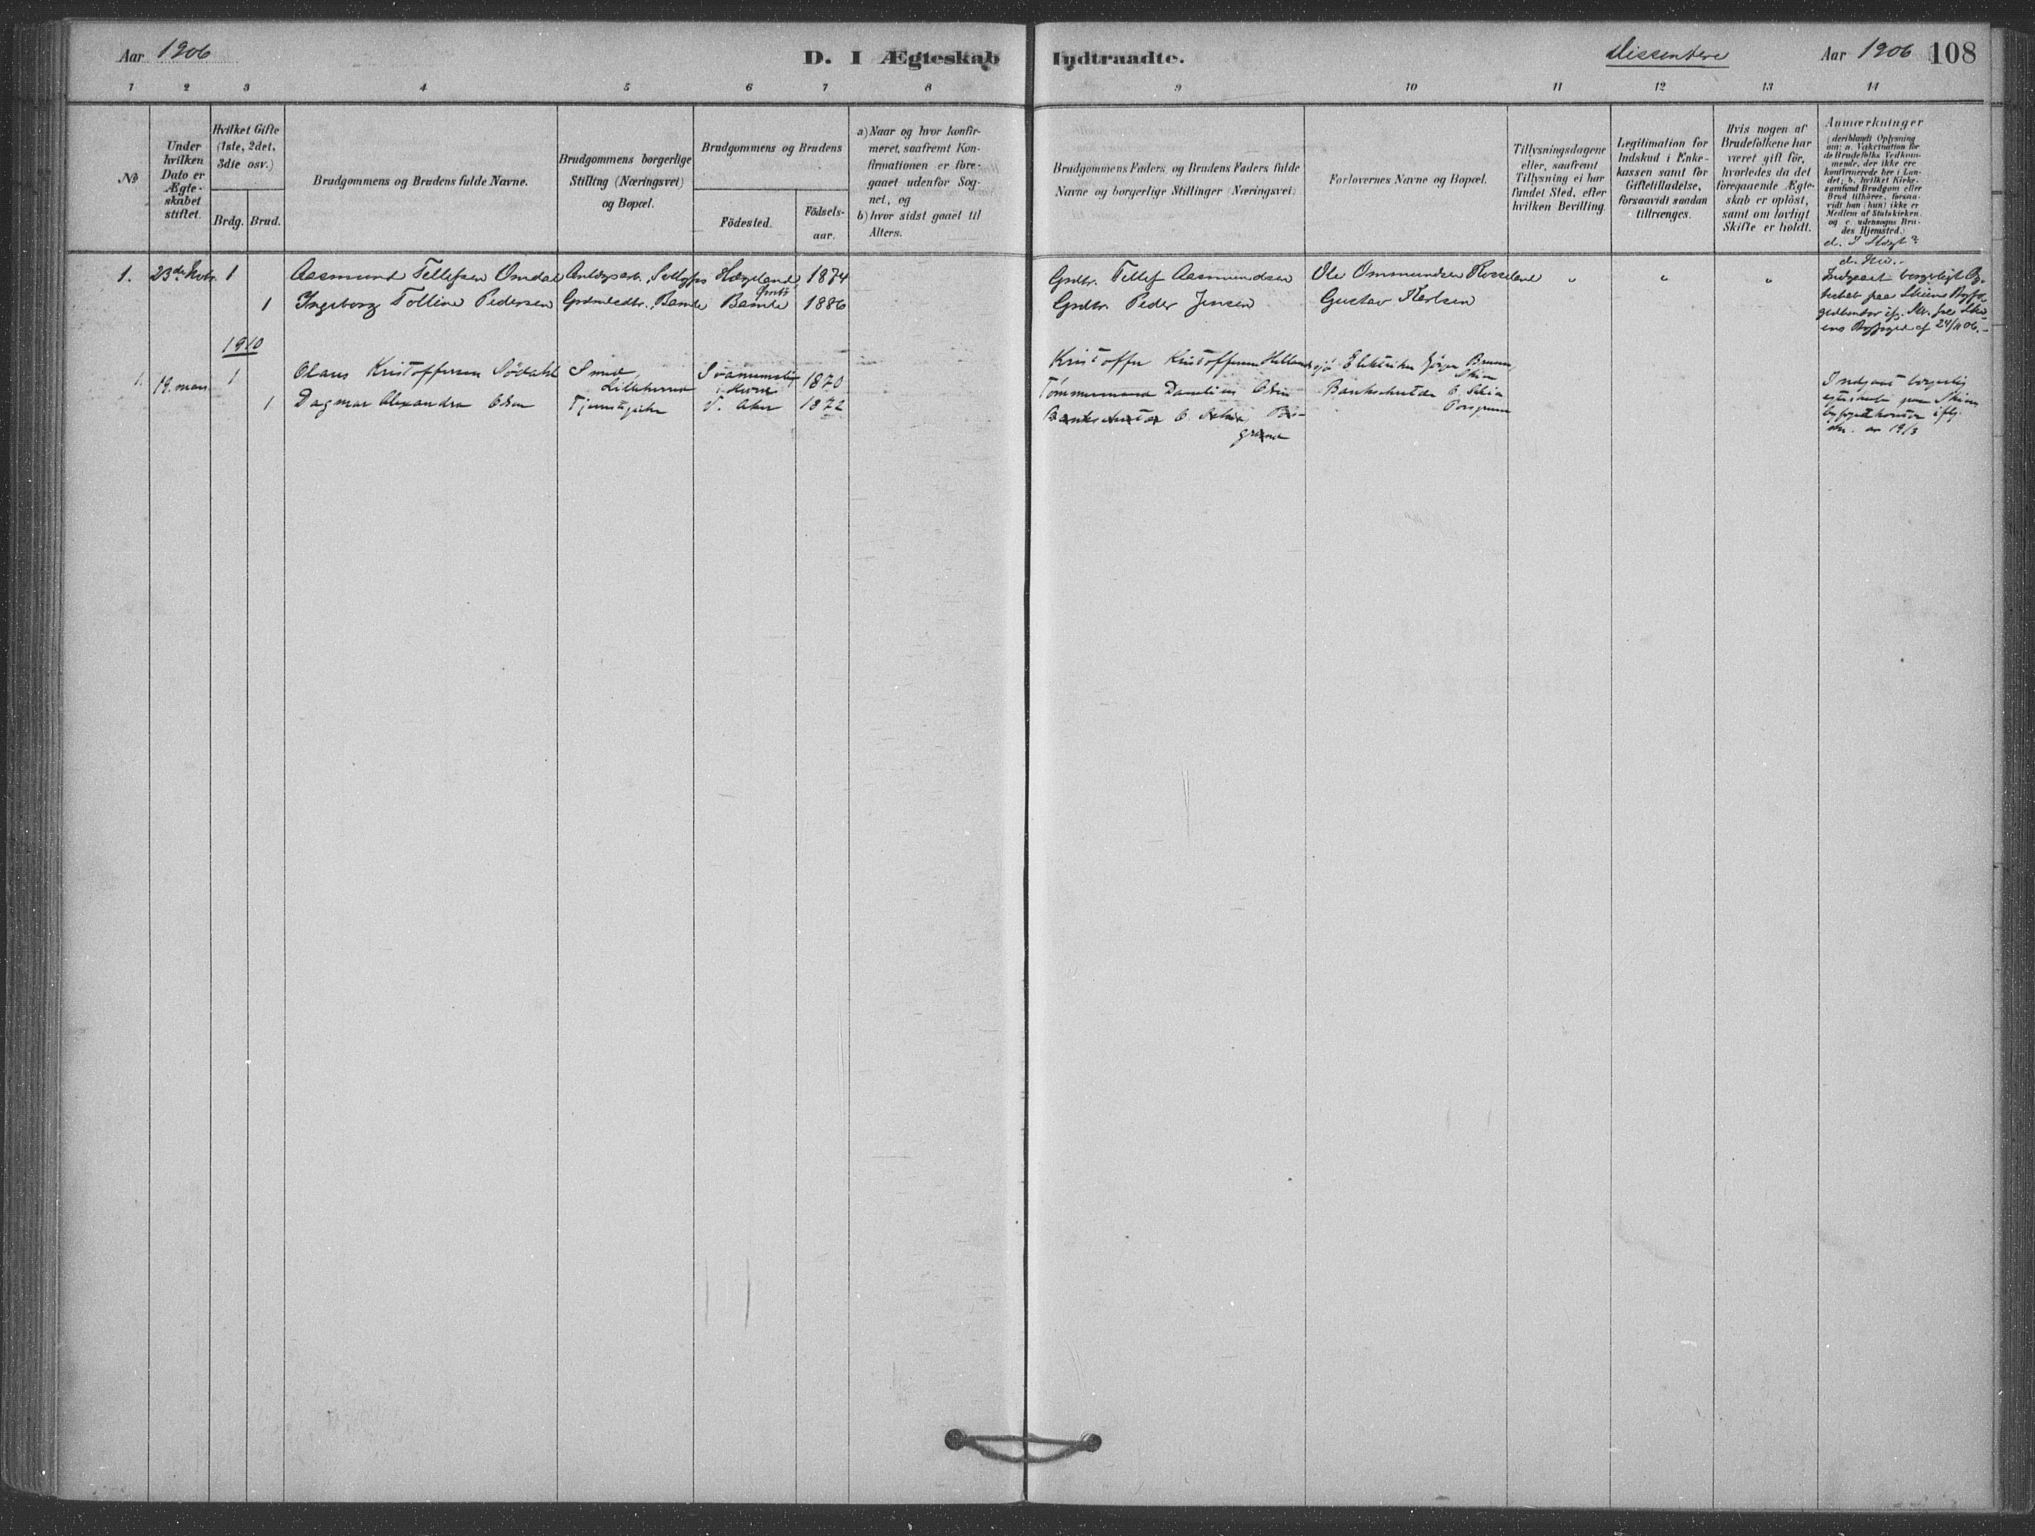 Aar 1906
D. I Ægteskab Indtraadte.
Dissentere
Aar 1906
108
1 2 3 4 5 6 7 8 9 10 11 12 13 14
№
Under hvilken Dato er Ægteskabet stiftet.
Hvilket Gifte (1ste, 2det, 3die osv.)
Brdg. Brud.
Brudgommens og Brudens fulde Navne.
Brudgommens borgerlige Stilling (Næringsvei) og Bopæl.
Brudgommens og Brudens
Födested.
Födsels-aar.
a) Naar og hvor konfirmeret, saafremt Konfirmationen er foregaaet udenfor Sognet, og
b) hvor sidst gaaet til Alters.
Brudgommens Faders og Brudens Faders fulde Navne og borgerlige Stillinger (Næringsvei)
Forlovernes Navne og Bopæl.
Tillysningsdagene eller, saafremt Tillysning ei har fundet Sted, efter hvilken Bevilling.
Legitimation for Indskud i Enkekassen samt for Giftetilladelse, forsaavidt saadan tiltrænges.
Hvis nogen af Brudefolkene har været gift för, hvorledes da det foregaaende Ægteskab er oplöst, samt om lovligt Skifte er holdt.
Anmærkninger (deriblandt Oplysning om: a. Vakcination for de Brudefolks Vedkommende, der ikke ere konfirmerede her i Landet; b. hvilket Kirkesamfund Brudgom eller Brud tilhörer, forsavidt han (hun) ikke er Medlem af Statskirken, og c. udensogns Brudes Hjemsted.)
1. 23de Novbr. 1 Aasmund Tellefsen Omdal Hægeland 1874 Gndbr. Tellef Aasmundsen Ole Ommundsen " " "
1 Ingeborg Tolline Pedersen Bamle Bamle 1886 Gndbr. Peder Jensen Gustav Karlsen
Indgaaet borgerligt Æg-
teskab paa Skiens Byfo-
gedkontor
ens Byfoged af 24/11 06.
1910
1. 19. mars 1 Olaus Kristoffersen Södahl Smed 1870 Kristoffer Kristoffersen
1 Dagmar Alexandra Olsen V. Aker 1872 Tømmermand Olsen
Skien
Porsgrunn
Indgaat borgerlig
Skien
19/3